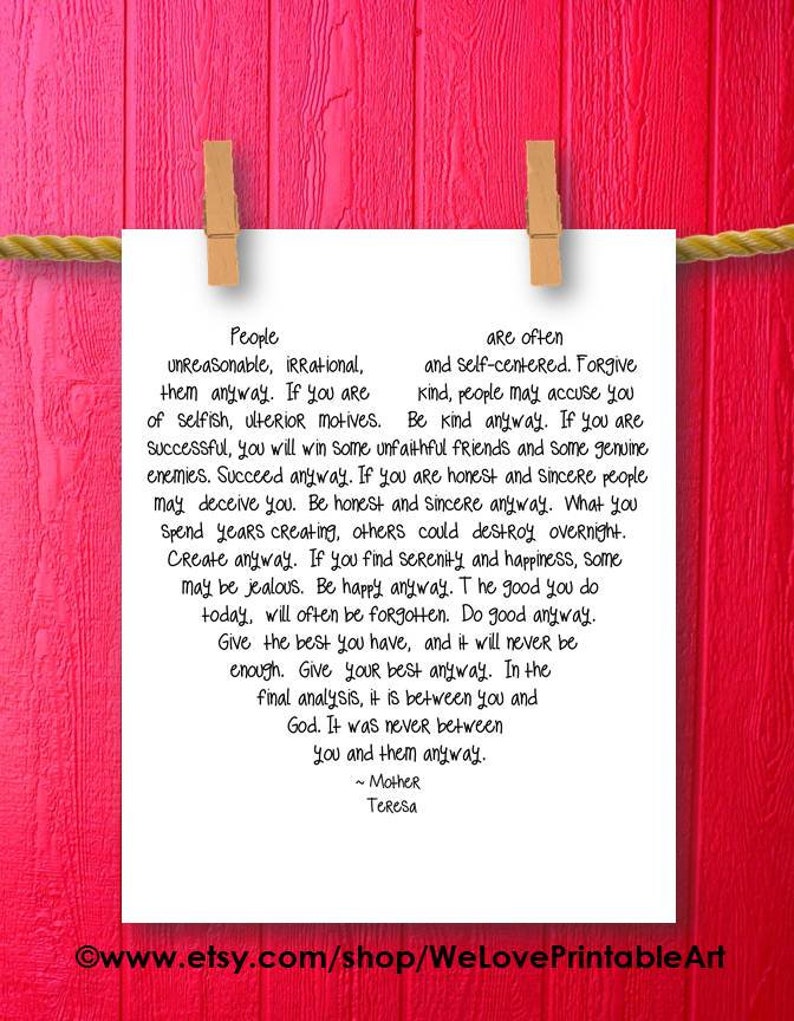 People are often
unreasonable, irrational, and self-centered. Forgive
them anyway. If you are kind, people may accuse you
of selfish, ulterior motives. Be kind anyway. If you are
successful, you will win some unfaithful friends and some genuine
enemies. Succeed anyway. If you are honest and sincere people
may deceive you. Be honest and sincere anyway. What you
spend years creating, others could destroy overnight.
Create anyway. If you find serenity and happiness, some
may be jealous. Be happy anyway. T he good you do
today, will often be forgotten. Do good anyway.
Give the best you have, and it will never be
enough. Give your best anyway. In the
final analysis, it is between you and
God. It was never between
you and them anyway.
~ Mother
Teresa
©www.etsy.com/shop/WeLovePrintableArt